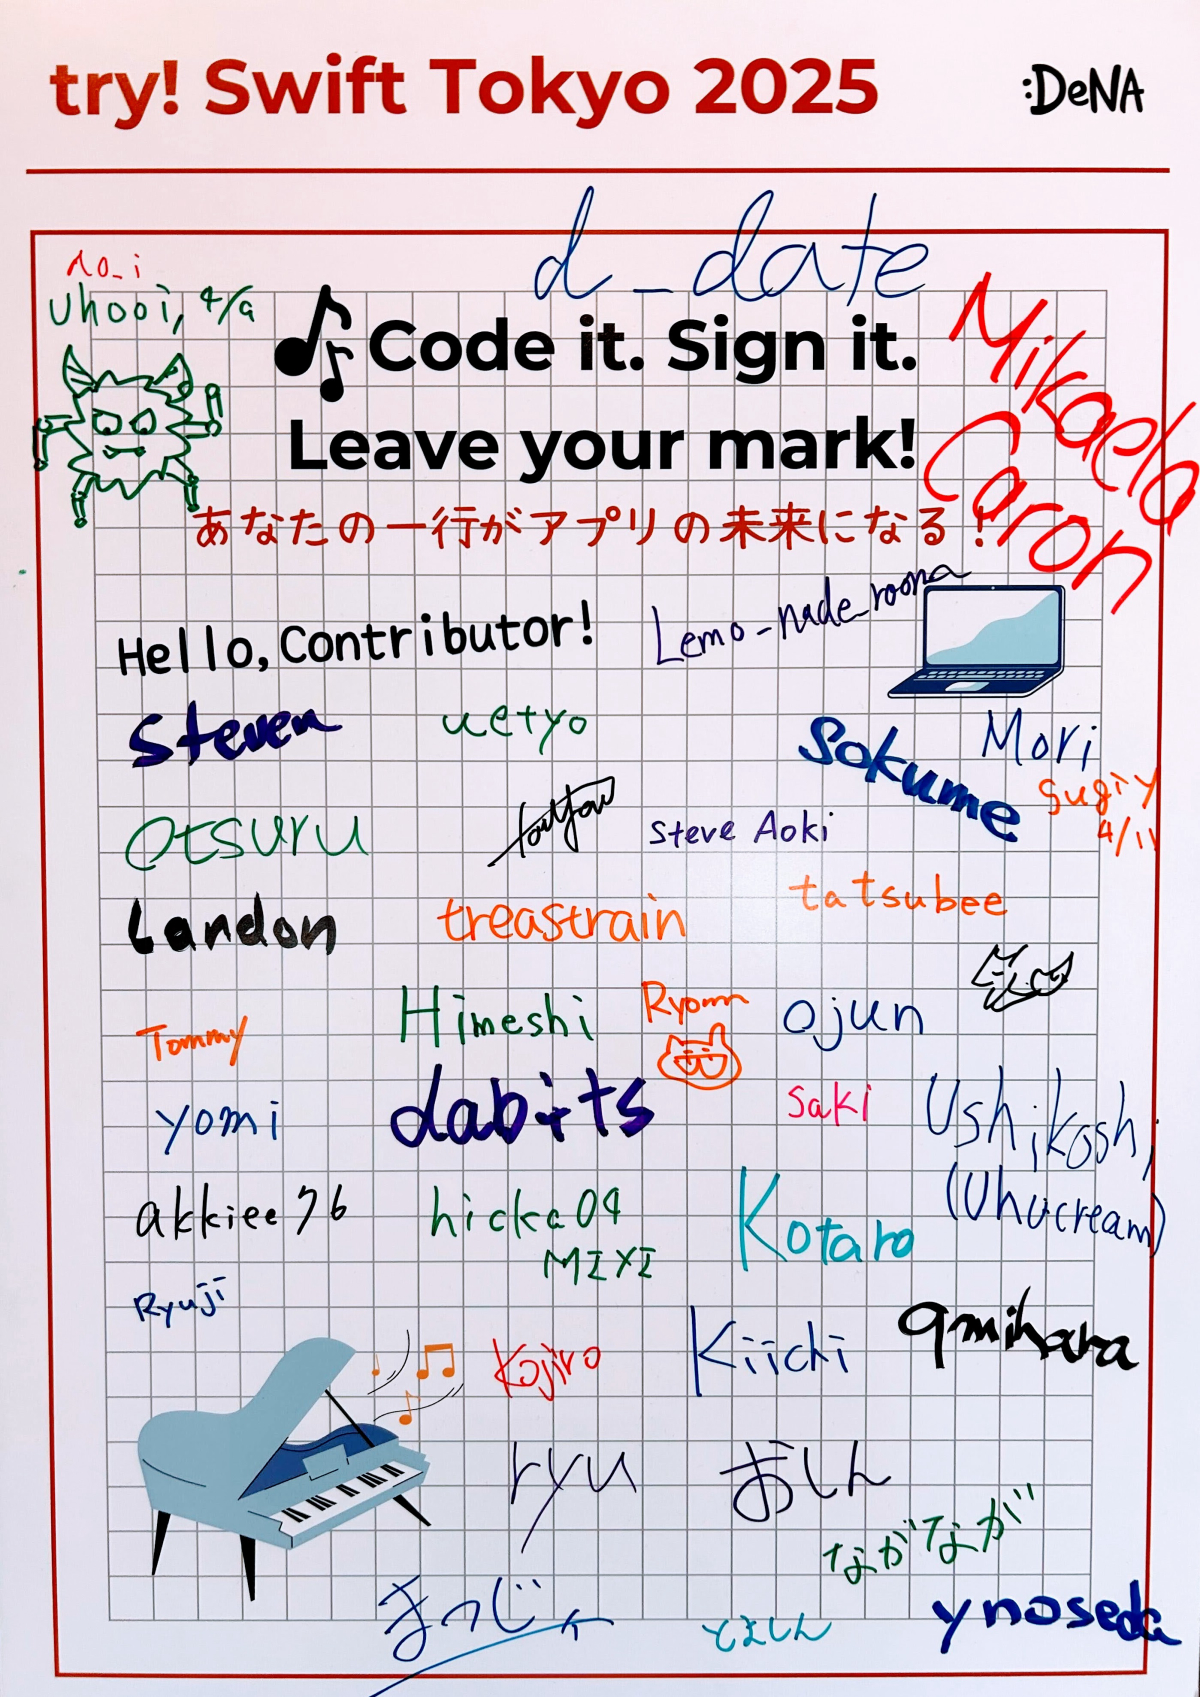 try! Swift Tokyo 2025
:DeNA
d_date
no_i
uhooi, 4/9
Mikaela
Caron
Code it. Sign it.
Leave your mark!
あなたの一行がアプリの未来になる！
Hello, Contributor!
Lemo-nade_room
Steven
uetyo
Sokume
Mori
sugiy
4/11
otsuru
Steve Aoki
Landon
treastrain
tatsubee
Tommy
Himeshi
Ryomm
ojun
yomi
dabits
saki
Ushikoshi
(Uhucream)
akkiee76
hicka04
MIXI
Kotaro
Ryuji
Kojiro
Kiichi
qmihara
ryu
おしん
ながなが
まっじょ
としん
ynoseda